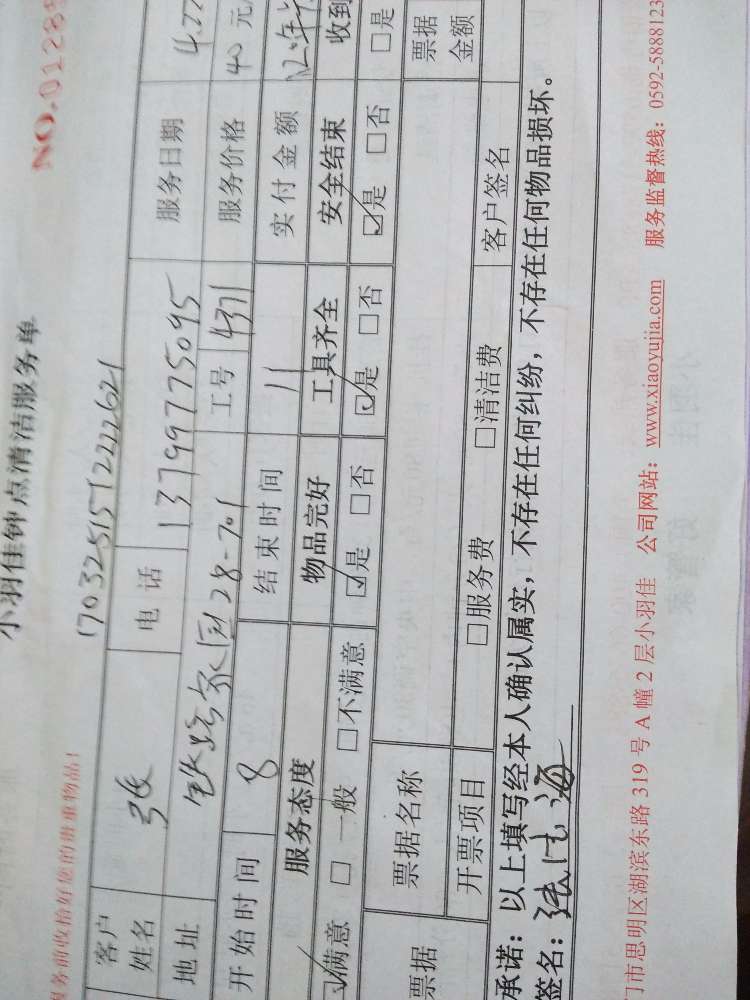 小羽佳钟点清洁服务单
NO.01285
服务前收拾好您的贵重物品!
客户姓名 张 电话 13799775095 服务日期 4.22
地址 铁路家园28-701 工号 4371 服务价格 40元
开始时间 8 结束时间 11 实付金额
服务态度 物品完好 工具齐全 安全结束 收到
☑满意 □一般 □不满意 ☑是 □否 ☑是 □否 ☑是 □否 □是
票据 票据名称 票据金额
开票项目 □服务费 □清洁费 客户签名
承诺:以上填写经本人确认属实,不存在任何纠纷,不存在任何物品损坏。
签名:
门市思明区湖滨东路 319 号 A 幢 2 层小羽佳 公司网站:www.xiaoyujia.com 服务监督热线:0592-5888123